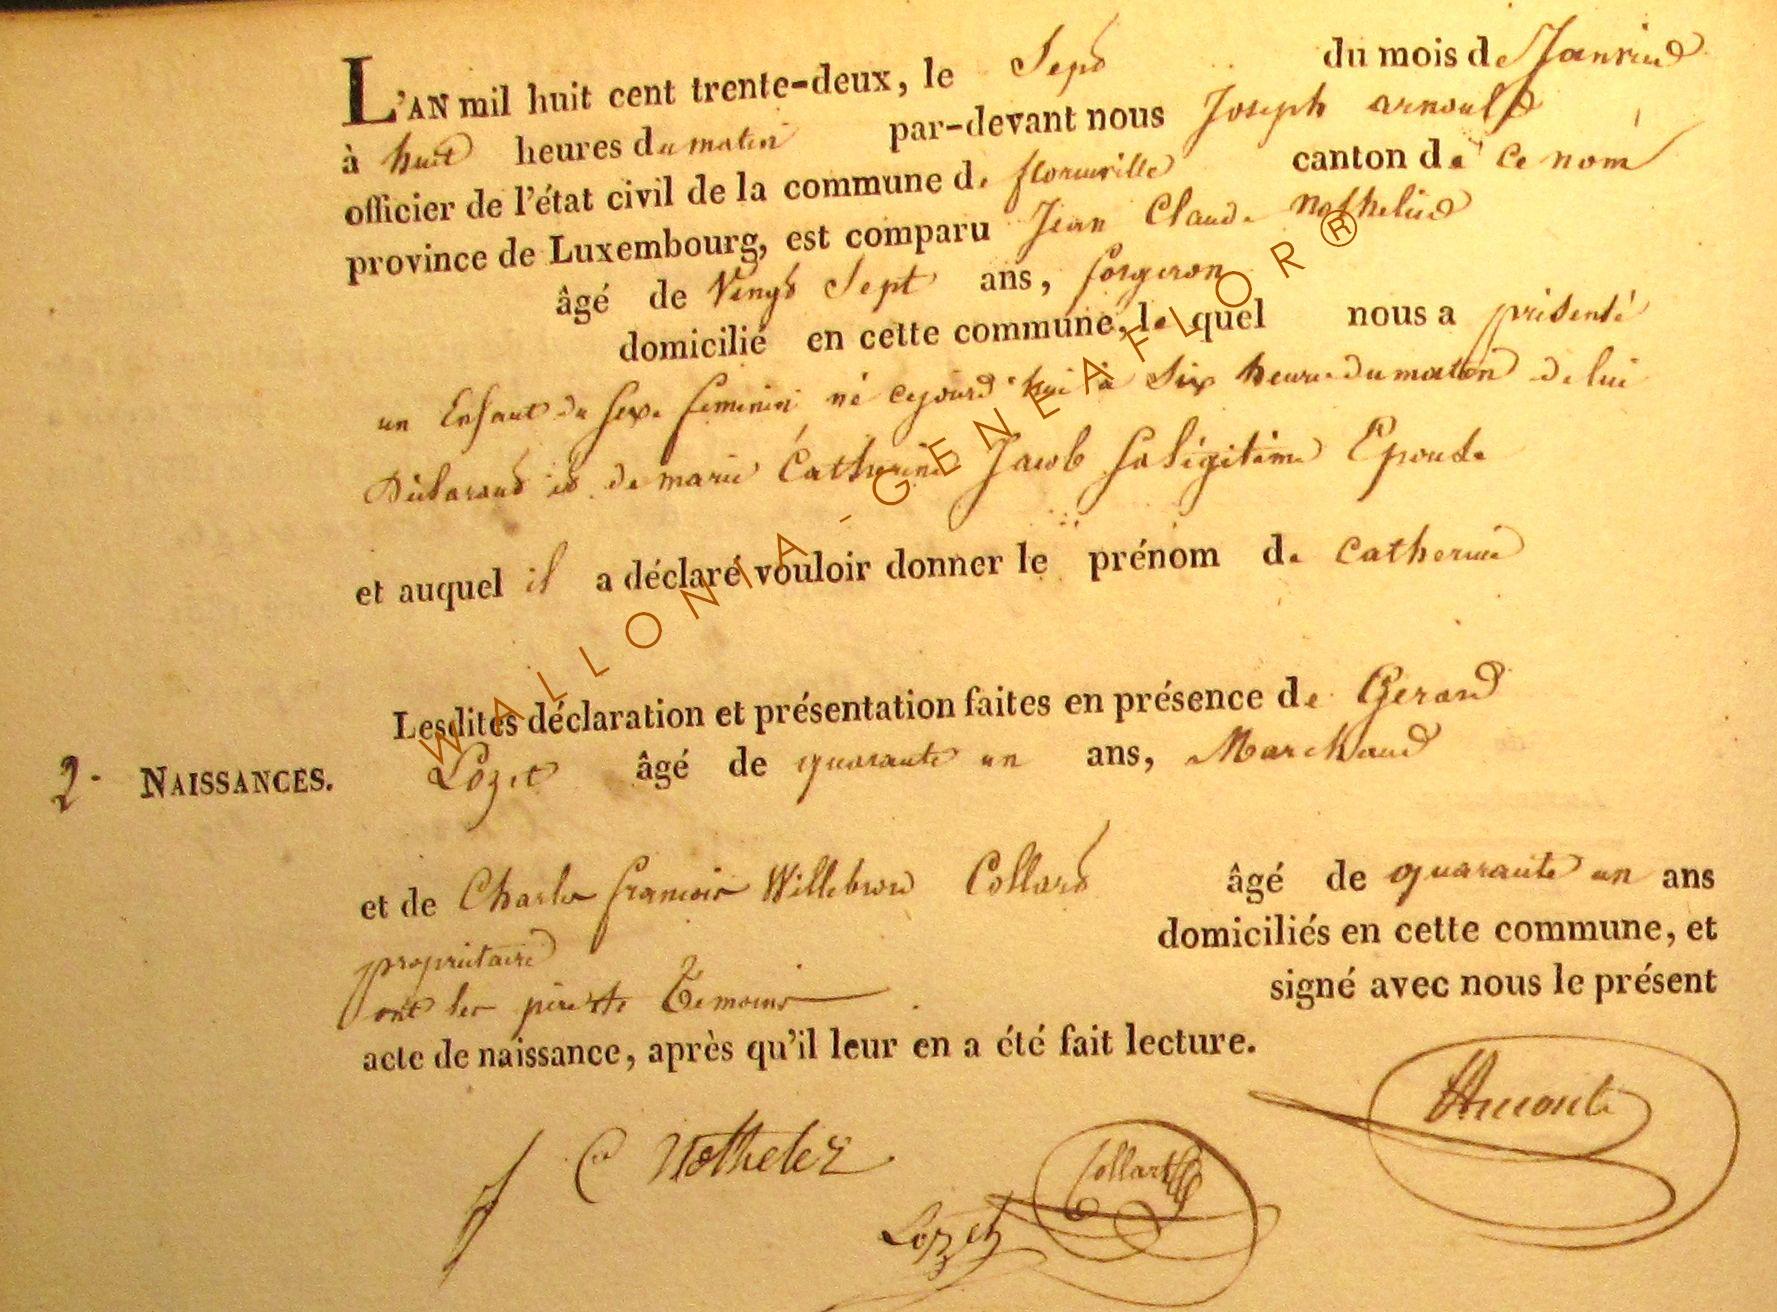 L'AN mil huit cent trente-deux, le Sept du mois de Janvier
à huit heures du matin par-devant nous Joseph arnould
officier de l'état civil de la commune de florenville canton de ce nom
province de Luxembourg, est comparu Jean Claude Nothelier
âgé de Vingt Sept ans, forgeron
domicilié en cette commune, le quel nous a présenté
un Enfant du sexe feminin né cejourd'hui à Six heures du matin de lui
Déclarant et de marie Catherine Jacob Sa légitime Epouse
et auquel il a déclaré vouloir donner le prénom de Catherine
Lesdites déclaration et présentation faites en présence de Gerard
2. NAISSANCES. Lozet âgé de quarante un ans, Marchand
et de Charles francois Willebrord Collard âgé de quarante un ans
propriétaire domiciliés en cette commune, et
ont les Temoins signé avec nous le présent
acte de naissance, après qu'il leur en a été fait lecture.
J C Nothelez Collart Arnould
Lozet
WALLONIA-GENEAFLOR®